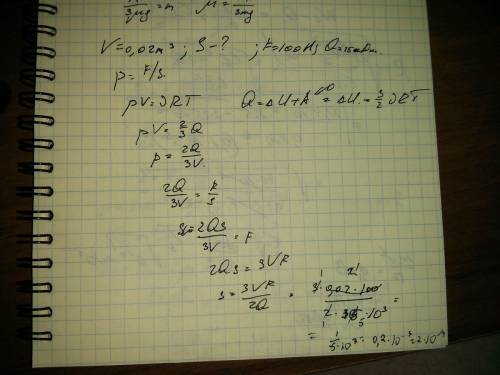 /3μg = m   μ = /3mg
V=0,02m³ ; S-? ; F=100H; Q=15кДж.
p = F/S.
pV=νRT   Q=ΔU+A = ΔU = 3/2 νRT
pV = 2/3 Q
p = 2Q/3V.
2Q/3V = F/S
2QS/3V = F
2QS = 3VF
S = 3VF/2Q = 3·0,02·100/2·15·10³ =
= 1/5·10³ = 0,2·10⁻³ = 2·10⁻⁴